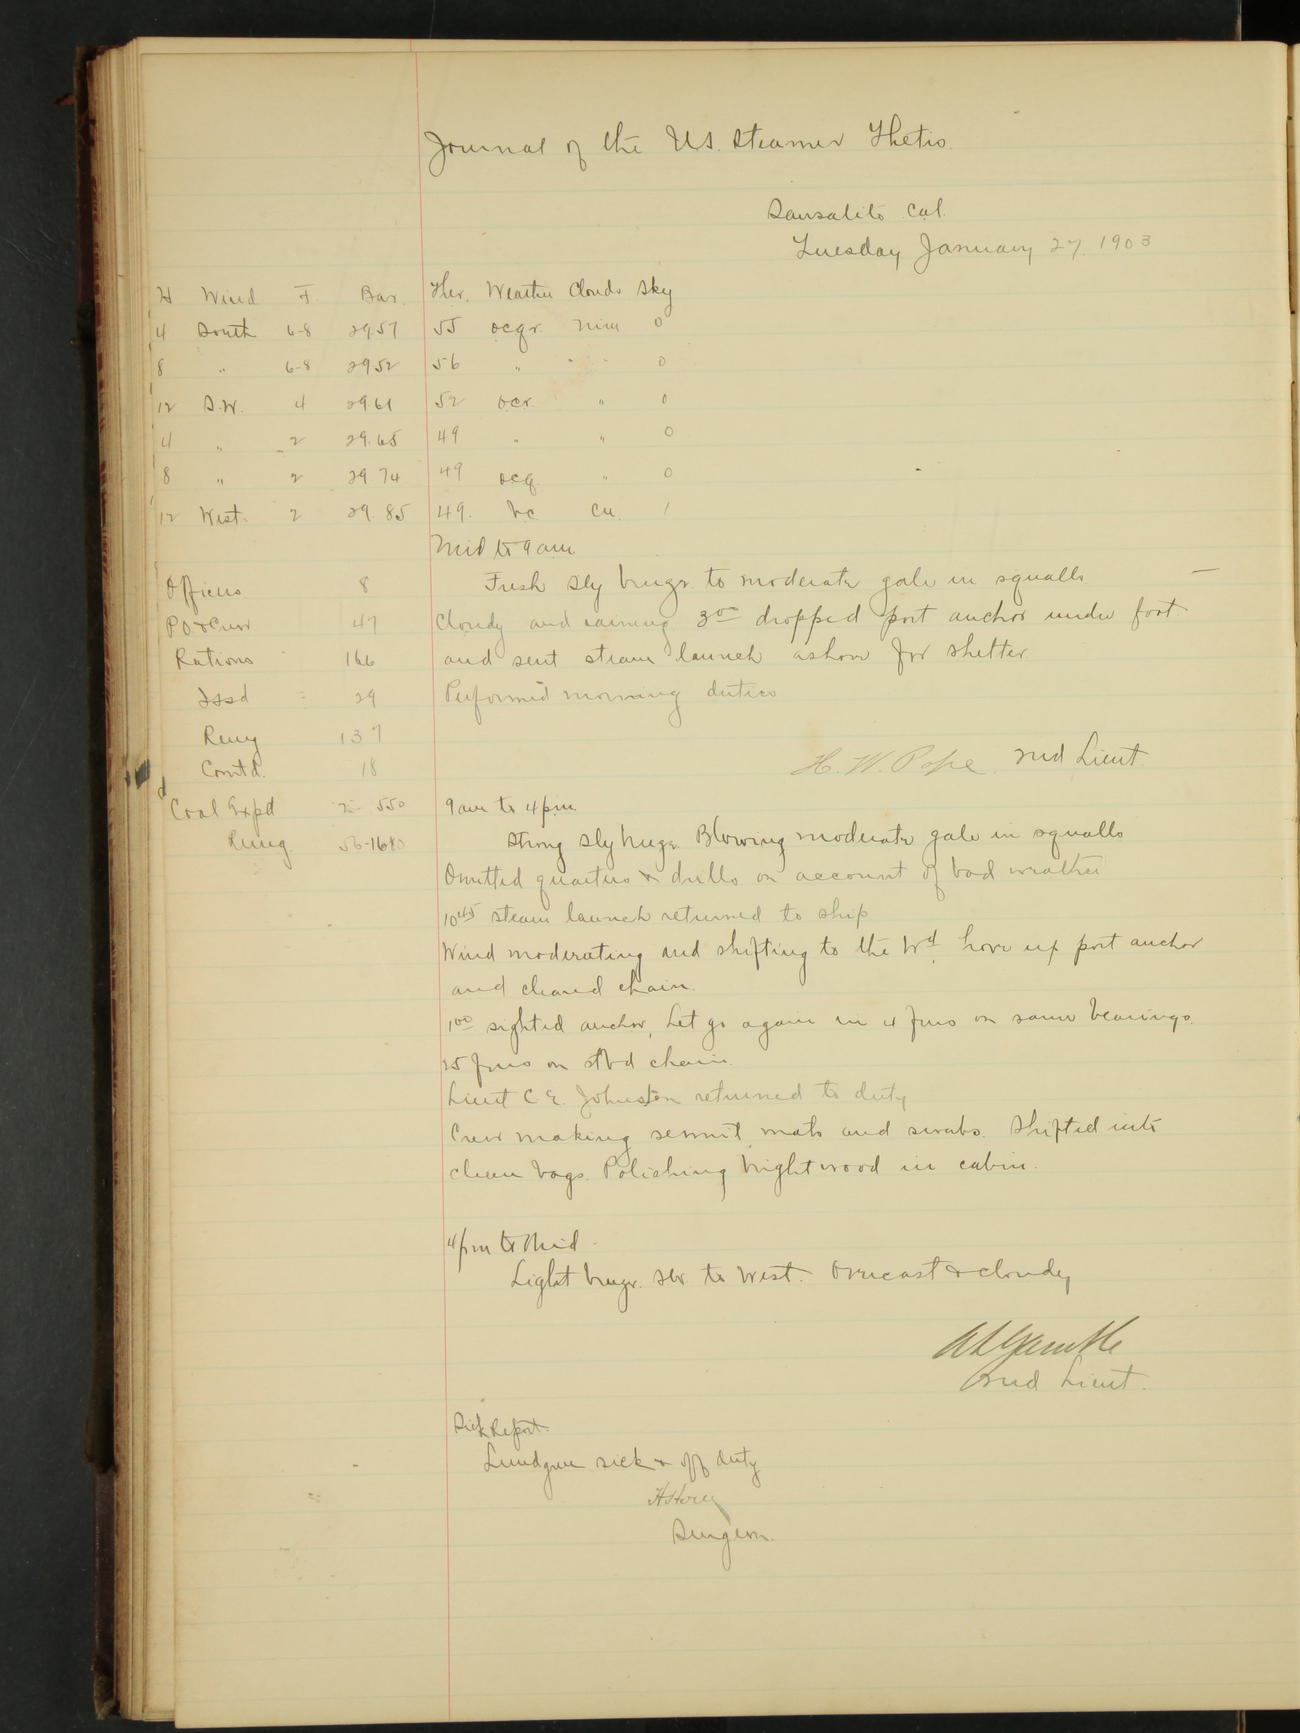 Journal of the U.S. Steamer Thetis.
Sausalito Cal.
Tuesday January 27. 1903
H Wind F. Bar. Ther. Weather Clouds Sky
4 South 6-8 29.57 55 ocqr. Nim 0
8 " 6-8 29 52 56 " " 0
12 S.W. 4 29 61 52 ocr. " 0
4 " 2 29.65 49 " " 0
8 " 2 29 74 49 ocq. " 0
12 West. 2 29. 85 49. bc Cu. 1
Mid to 9 am
Officers 8
Fresh Sly breeze to moderate gale in squalls
P O & Crew 47
Cloudy and raining 3 00 dropped port anchor under foot
Rations 166
and sent steam launch ashore for shelter
Issd 29
Performed morning duties
Remg 137
H. W. Pope. 2nd Lieut
Comtd. 18
Coal Expd 2- 550
9 am to 4 pm.
Remg. 56-1680
Strong Sly breeze. Blowing moderate gale in squalls
Omitted quarters & drills on account of bad weather
10 45 steam launch returned to ship
Wind moderating and shifting to the Wd. hove up port anchor
and cleared chain.
1 00 sighted anchor, Let go again in 4 fms on same bearings.
25 fms on stbd chain.
Lieut C E. Johnston returned to duty
Crew making sennit, mats and swabs. Shifted into
clean bags. Polishing bright wood in cabin.
4 pm to Mid.
Light breeze. SW. to West. Overcast & cloudy
2nd Lieut.
Sick Report.
Lundgren sick & off duty
Surgeon.